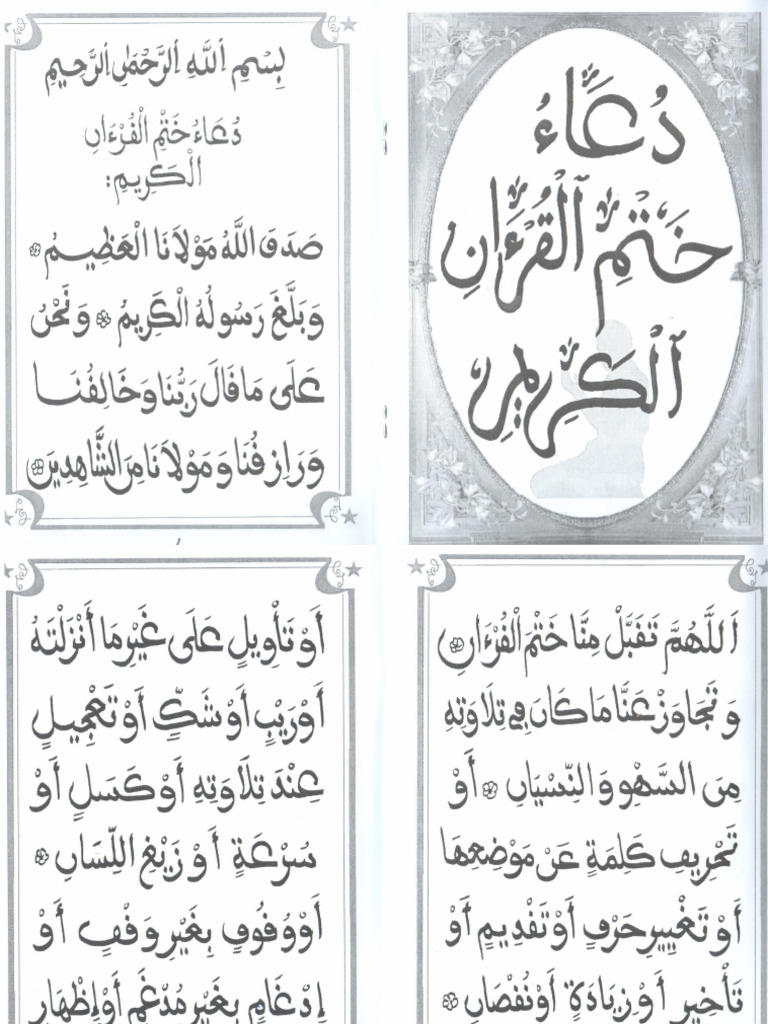 دُعَاءُ
خَتْمِ ٱلْقُرْءَانِ
ٱلْكَرِيمِ
بِسْمِ اللَّهِ الرَّحْمَٰنِ الرَّحِيمِ
دُعَاءُ خَتْمِ الْقُرْءَانِ
الْكَرِيمِ:
صَدَقَ اللَّهُ مَوْلَانَا الْعَظِيمُ
وَبَلَّغَ رَسُولُهُ الْكَرِيمُ وَنَحْنُ
عَلَى مَا قَالَ رَبُّنَا وَخَالِقُنَا
وَرَازِقُنَا وَمَوْلَانَا مِنَ الشَّاهِدِينَ
اَللَّهُمَّ تَقَبَّلْ مِنَّا خَتْمَ الْقُرْءَانِ
وَتَجَاوَزْ عَنَّا مَا كَانَ فِي تِلَاوَتِهِ
مِنَ السَّهْوِ وَالنِّسْيَانِ أَوْ
تَحْرِيفِ كَلِمَةٍ عَنْ مَوْضِعِهَا
أَوْ تَغْيِيرِ حَرْفٍ أَوْ تَقْدِيمٍ أَوْ
تَأْخِيرٍ أَوْ زِيَادَةٍ أَوْ نُقْصَانٍ
أَوْ تَأْوِيلٍ عَلَى غَيْرِ مَا أَنْزَلْتَهُ
أَوْ رَيْبٍ أَوْ شَكٍّ أَوْ تَعْجِيلٍ
عِنْدَ تِلَاوَتِهِ أَوْ كَسَلٍ أَوْ
سُرْعَةٍ أَوْ زَيْغِ اللِّسَانِ
أَوْ وُقُوفٍ بِغَيْرِ وَقْفٍ أَوْ
إِدْغَامٍ بِغَيْرِ مُدْغَمٍ أَوْ إِظْهَارٍ